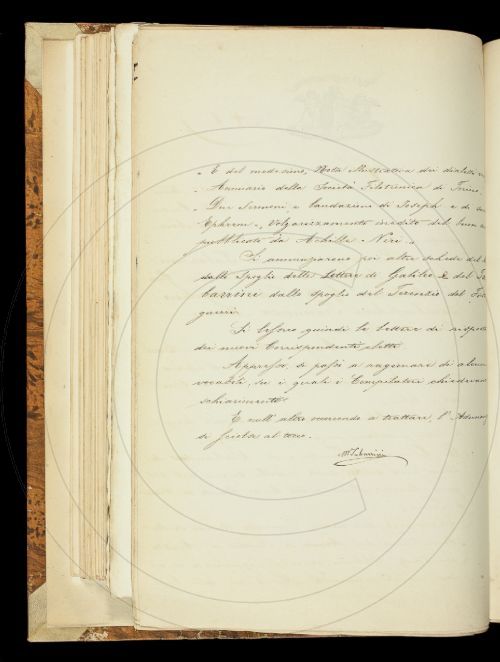 „ E del medesimo, Nota illustrativa dei dialetti
„ Annuario della Società Filotecnica di Torino.
„ Due Sermoni e laudazione di Joseph e di
Ephrem „, Volgarizzamento inedito del buon
pubblicato da Achille Neri „
Si annunziarono poi altre schede del
dallo Spoglio delle Lettere di Galileo e del
dallo spoglio del Terenzio del
guerri.
Si lessero quindi le lettere di risposta
dei nuovi Corrispondenti eletti.
Appresso, si passò a ragionare di alcuni
vocaboli, su i quali i Compilatori chiedevano
schiarimento.
E null' altro essendo a trattare, l' Adunanza
si sciolse al tocco.
M. Tabarrini